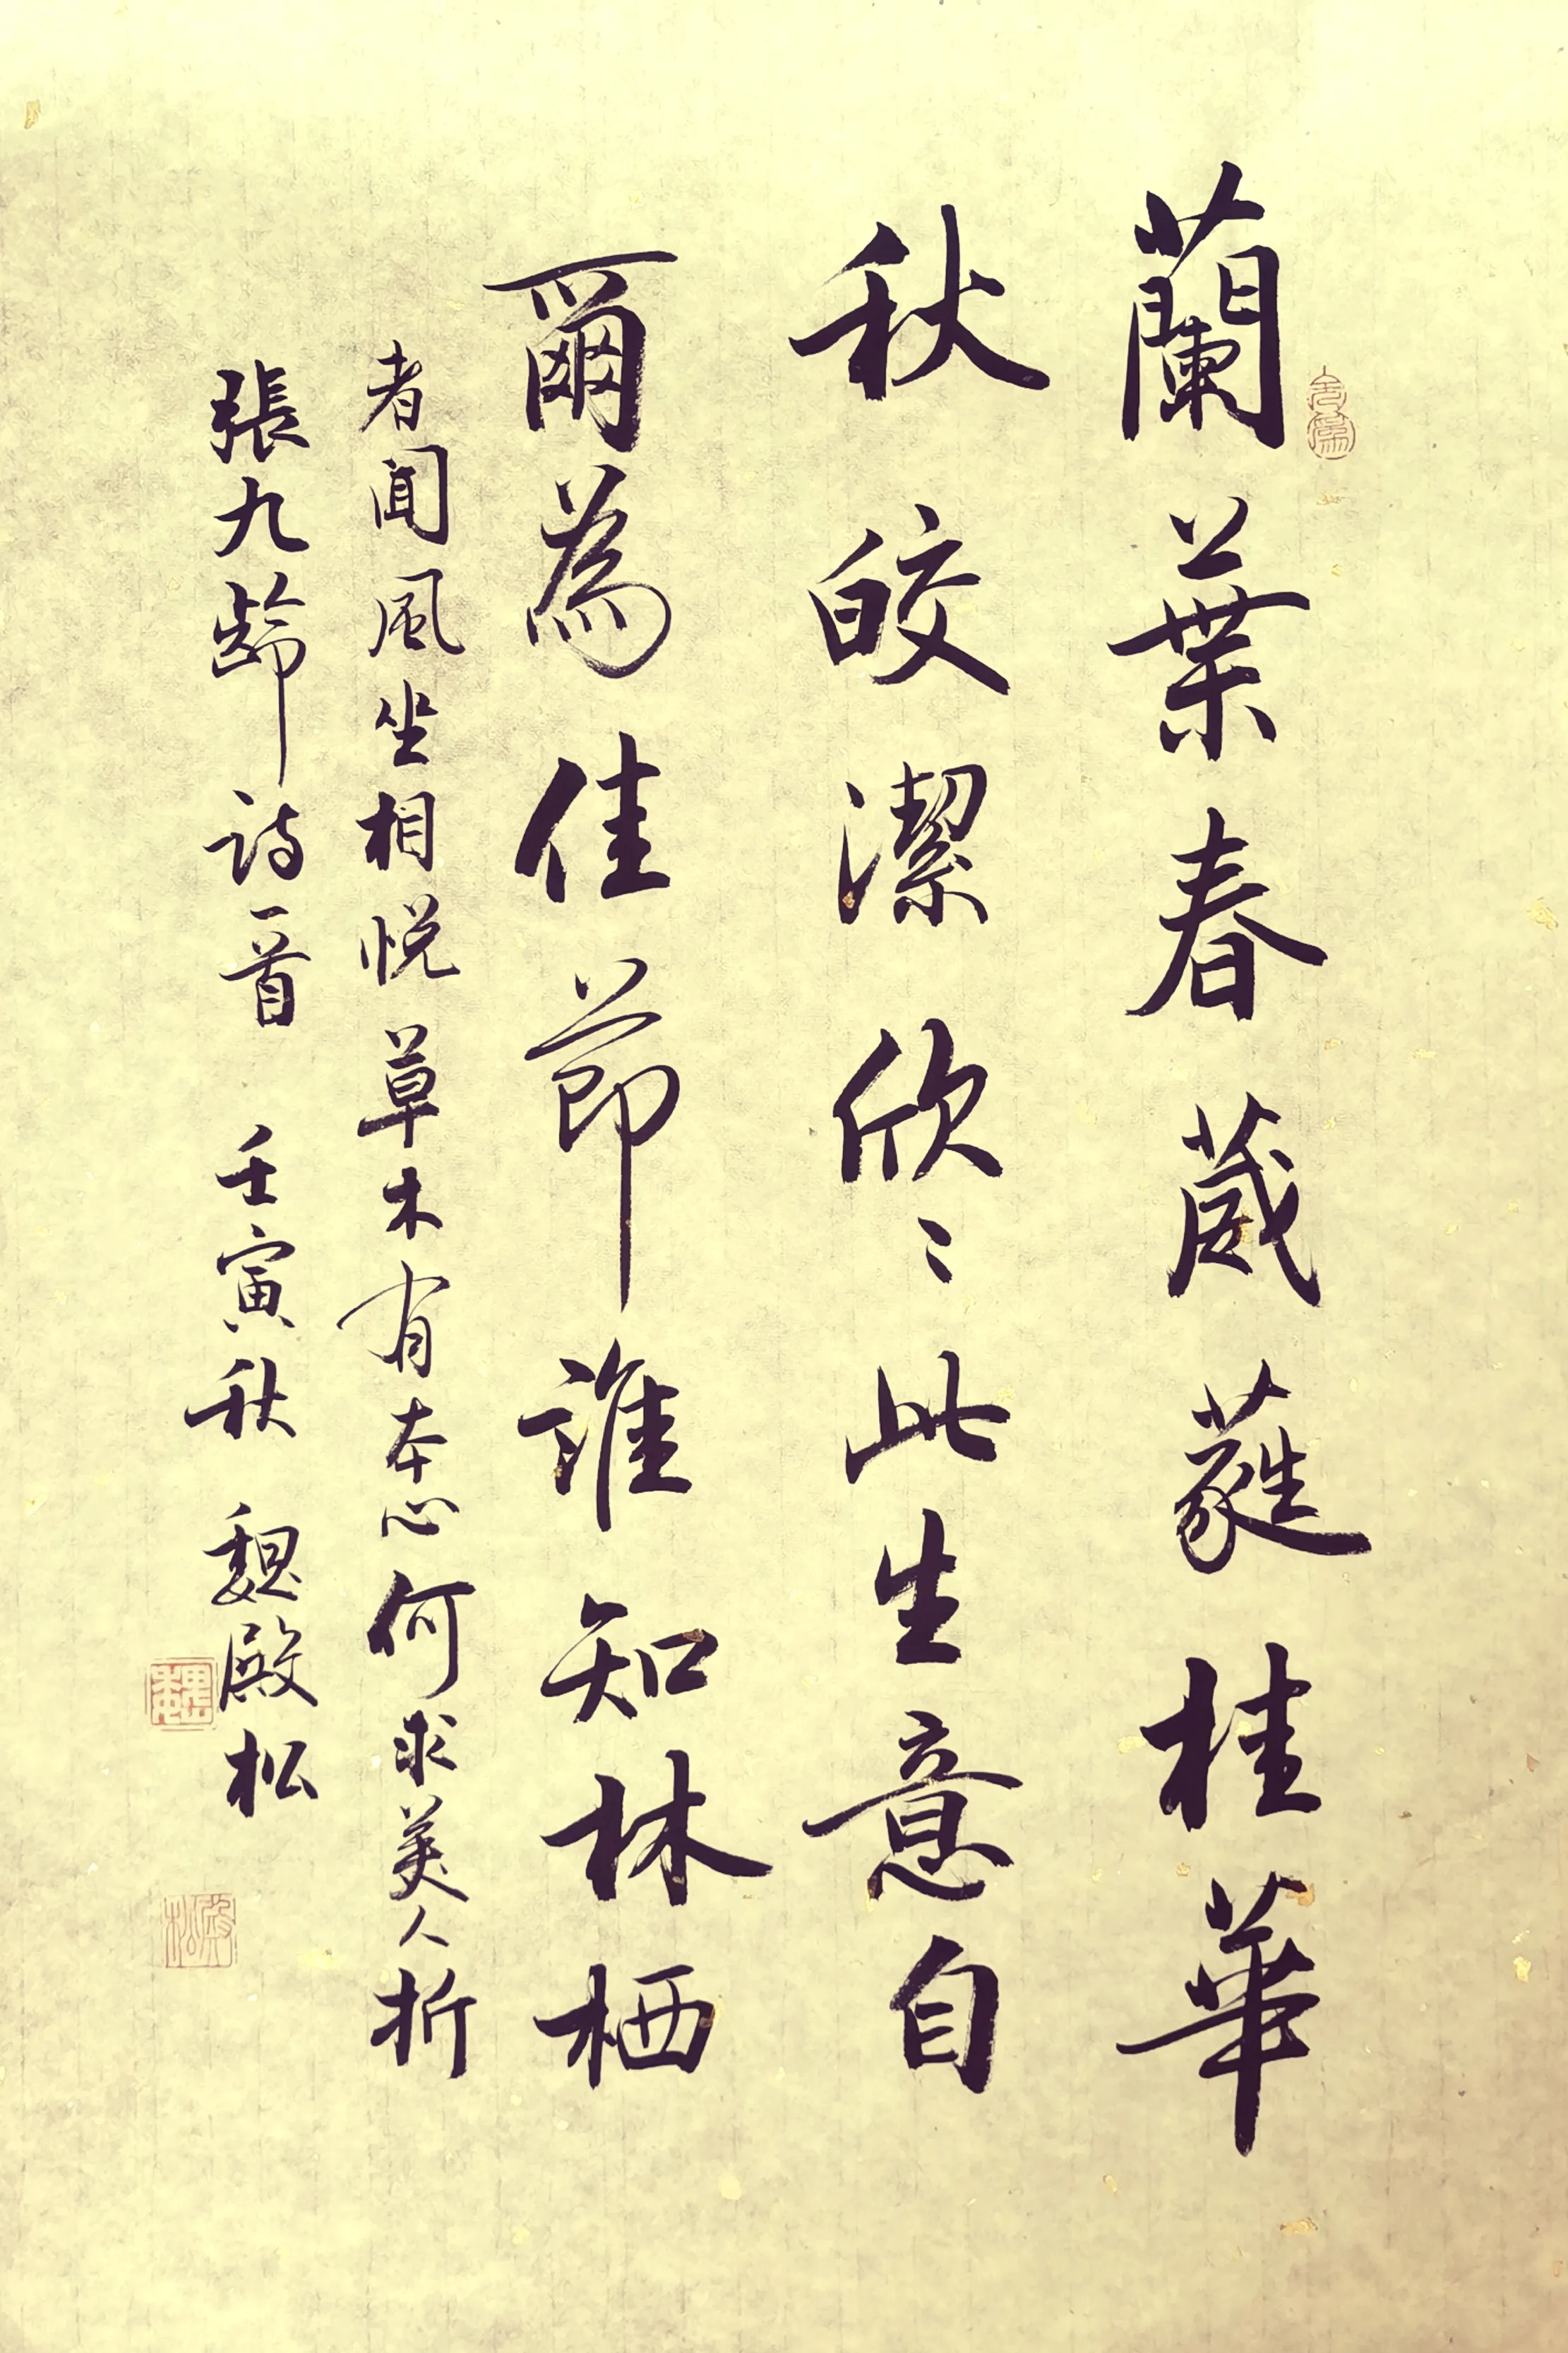 蘭葉春葳蕤桂華
秋皎潔欣〻此生意自
爾為佳節誰知林栖
者聞風坐相悅草木有本心何求美人折
張九齡詩一首 壬寅秋 魏殿松
魏
殿松